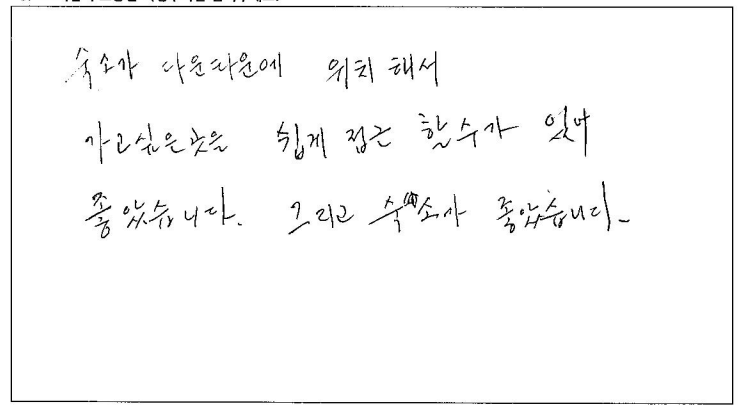 숙소가 다운타운에 위치 해서
가고싶은곳은 쉽게 접근 할수가 있어
좋았습니다. 그리고 숙소가 좋았습니다.